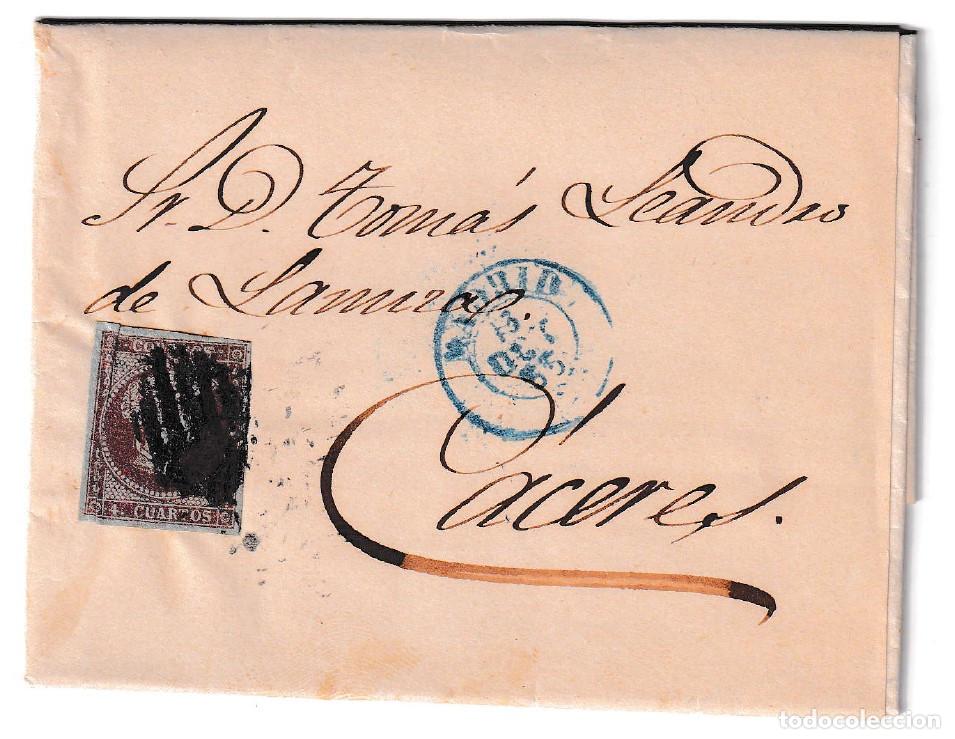 Sr. D. Tomás Leandro
de
MADRID
CORREOS
CUARTOS
Cáceres.
todocoleccion